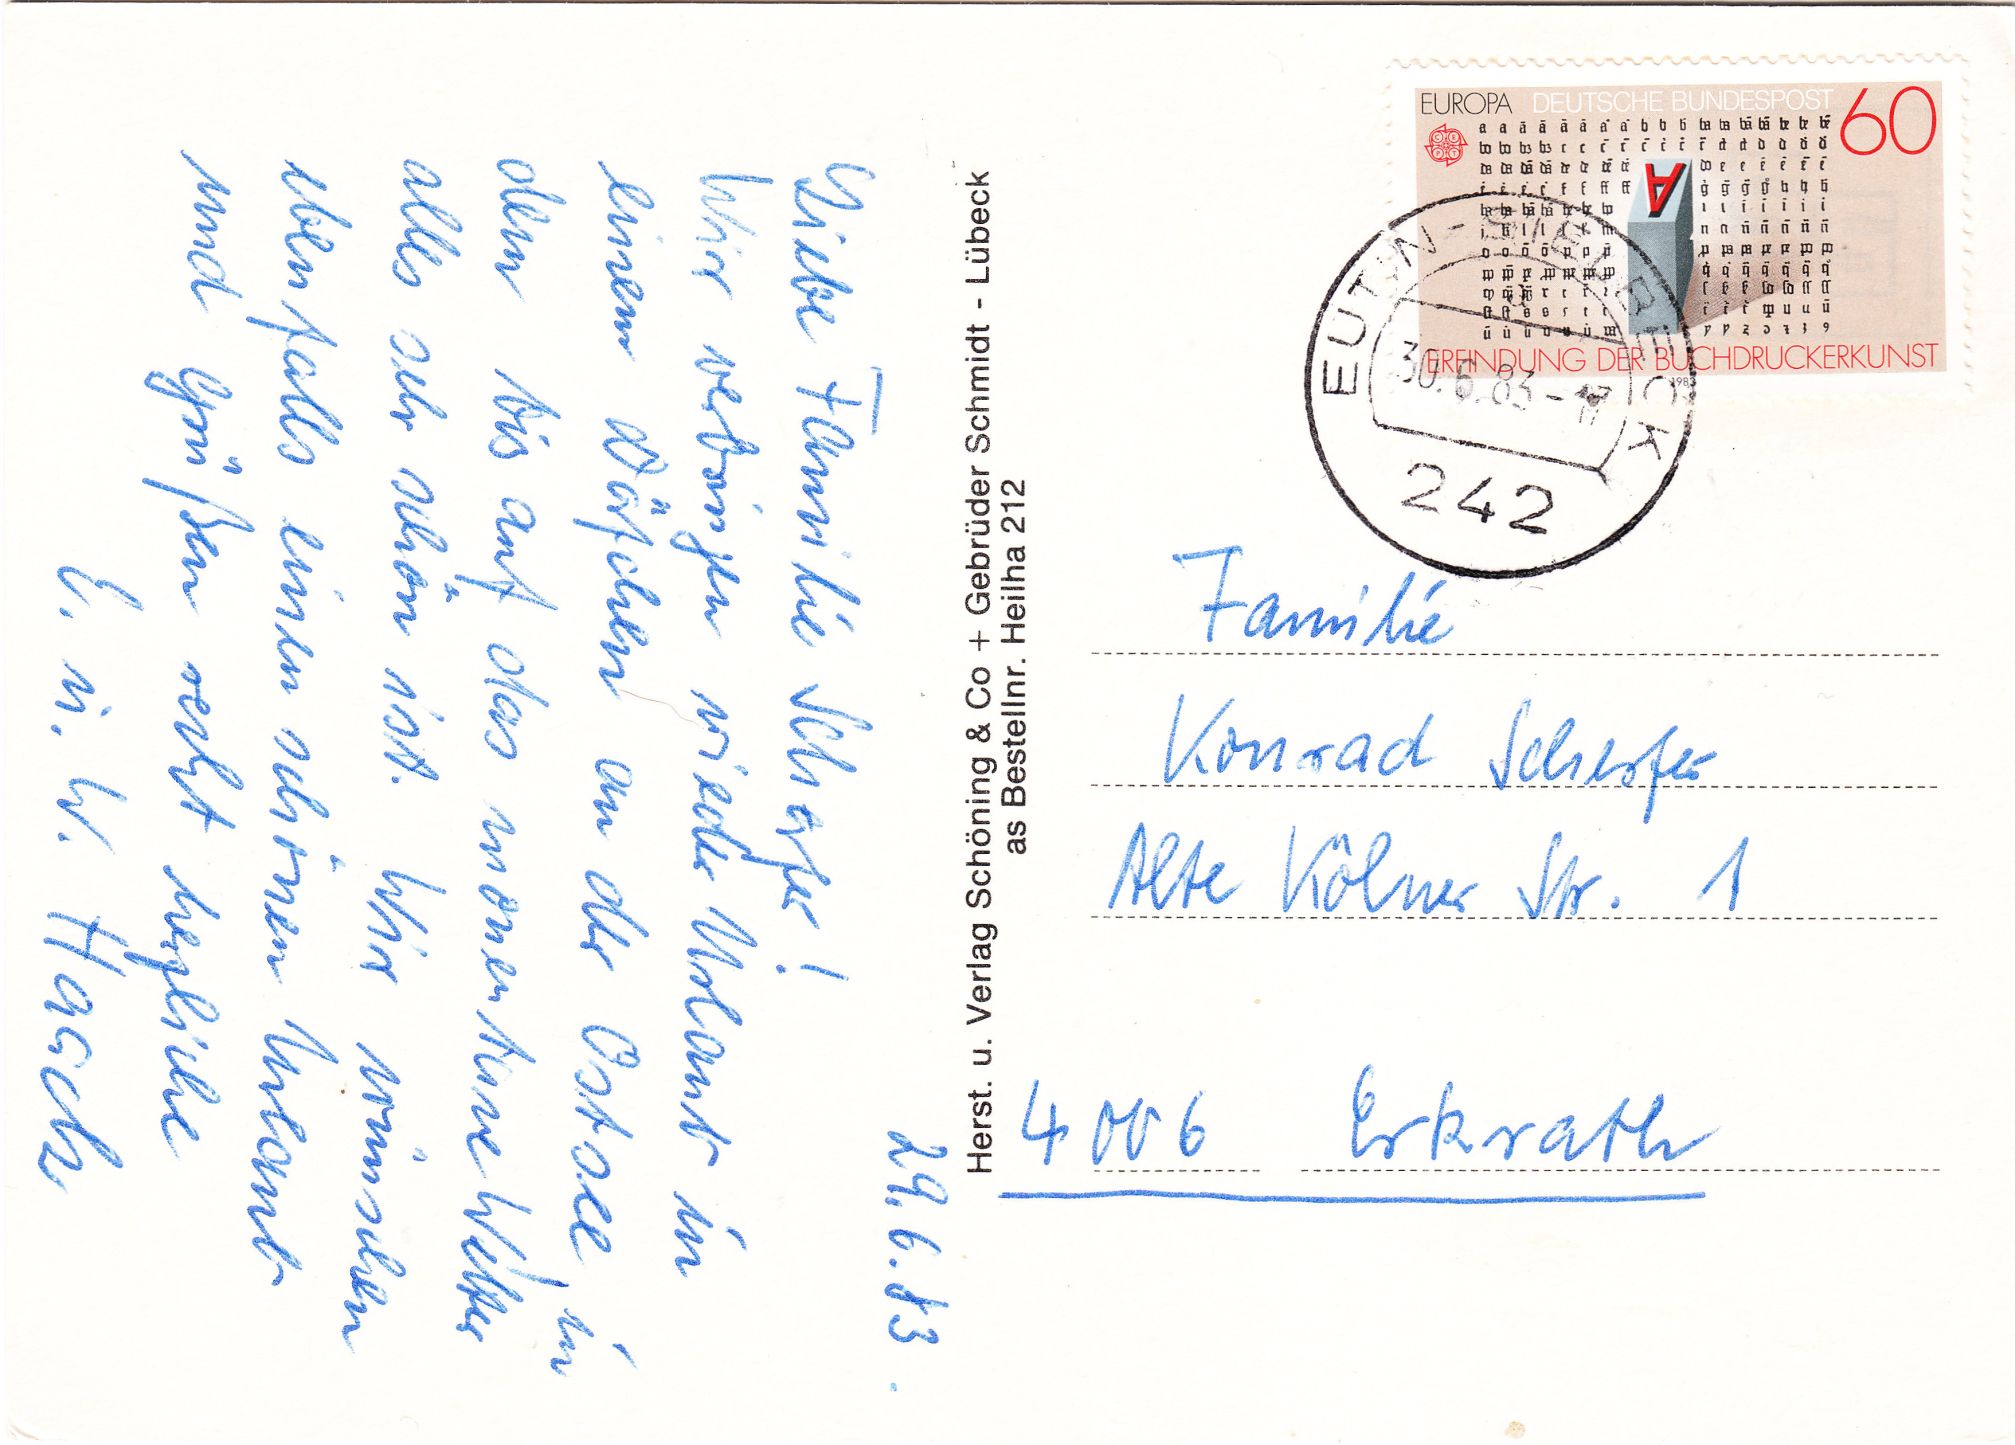 29.6.83.
Liebe Familie Scherfer!
Wir verbringen wieder Urlaub in
einem Dörfchen an der Ostsee, in
dem bis auf das momentane Wetter
alles sehr schön ist. Wir wünschen
ebenfalls einen schönen Urlaub
und grüßen recht herzliche
E. u. W. Haacks
Herst. u. Verlag Schöning & Co + Gebrüder Schmidt - Lübeck
as Bestellnr. Heilha 212
EUROPA DEUTSCHE BUNDESPOST 60
ERFINDUNG DER BUCHDRUCKERKUNST
1983
EUTIN-SIELBECK
30.6.83-17
242
Familie
Konrad Scherfer
Alte Kölner Str. 1
4006 Erkrath